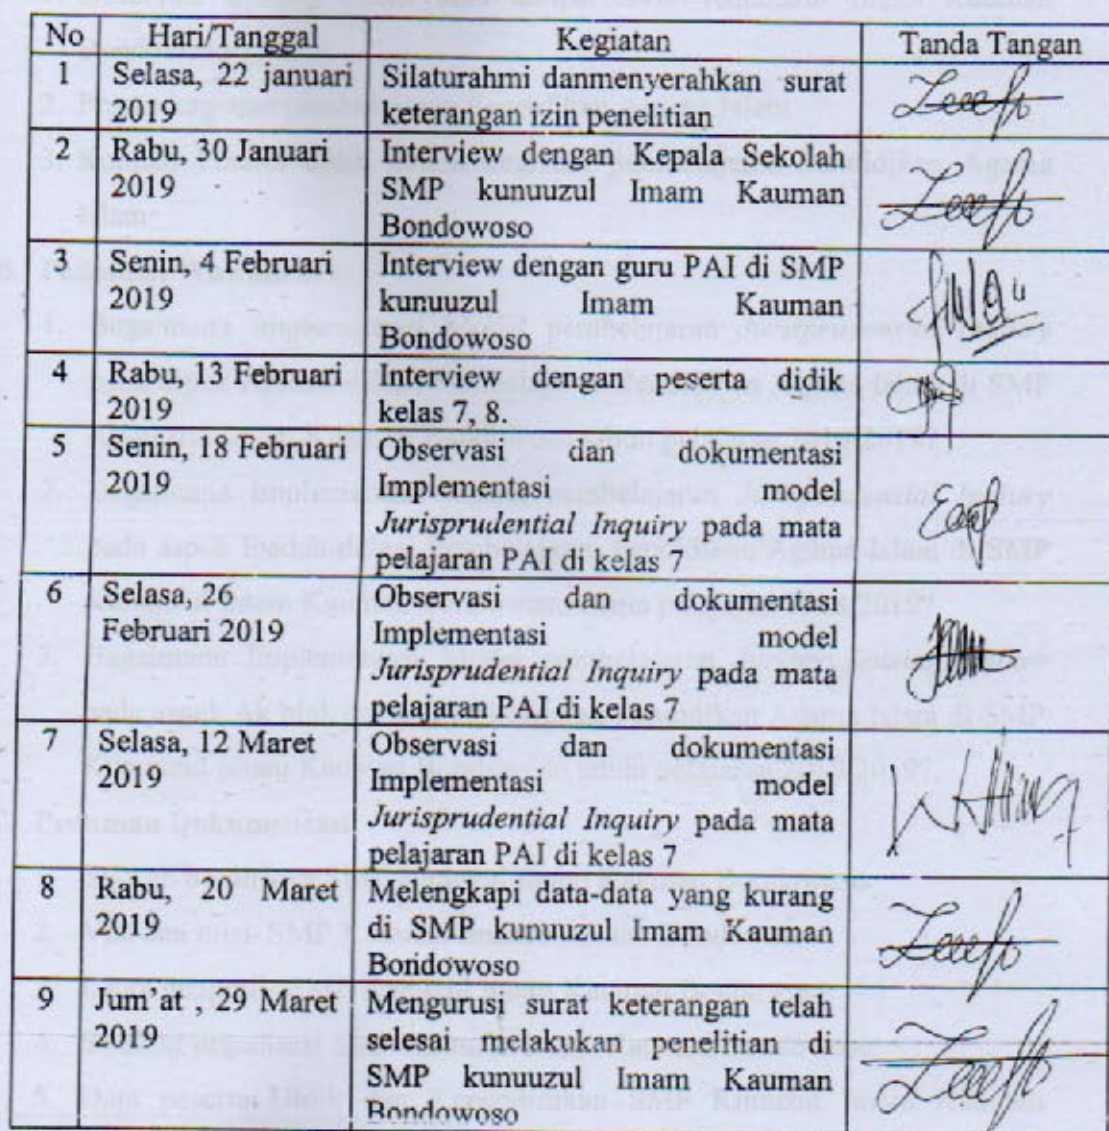 No Hari/Tanggal Kegiatan Tanda Tangan
1 Selasa, 22 januari Silaturahmi danmenyerahkan surat
2019 keterangan izin penelitian
2 Rabu, 30 Januari Interview dengan Kepala Sekolah
2019 SMP kunuuzul Imam Kauman
Bondowoso
3 Senin, 4 Februari Interview dengan guru PAI di SMP
2019 kunuuzul Imam Kauman
Bondowoso
4 Rabu, 13 Februari Interview dengan peserta didik
2019 kelas 7, 8,
5 Senin, 18 Februari Observasi dan dokumentasi
2019 Implementasi model
Jurisprudential Inquiry pada mata
pelajaran PAI di kelas 7
6 Selasa, 26 Observasi dan dokumentasi
Februari 2019 Implementasi model
Jurisprudential Inquiry pada mata
pelajaran PAI di kelas 7
7 Selasa, 12 Maret Observasi dan dokumentasi
2019 Implementasi model
Jurisprudential Inquiry pada mata
pelajaran PAI di kelas 7
8 Rabu, 20 Maret Melengkapi data-data yang kurang
2019 di SMP kunuuzul Imam Kauman
Bondowoso
9 Jum'at , 29 Maret Mengurusi surat keterangan telah
2019 selesai melakukan penelitian di
SMP kunuuzul Imam Kauman
Bondowoso